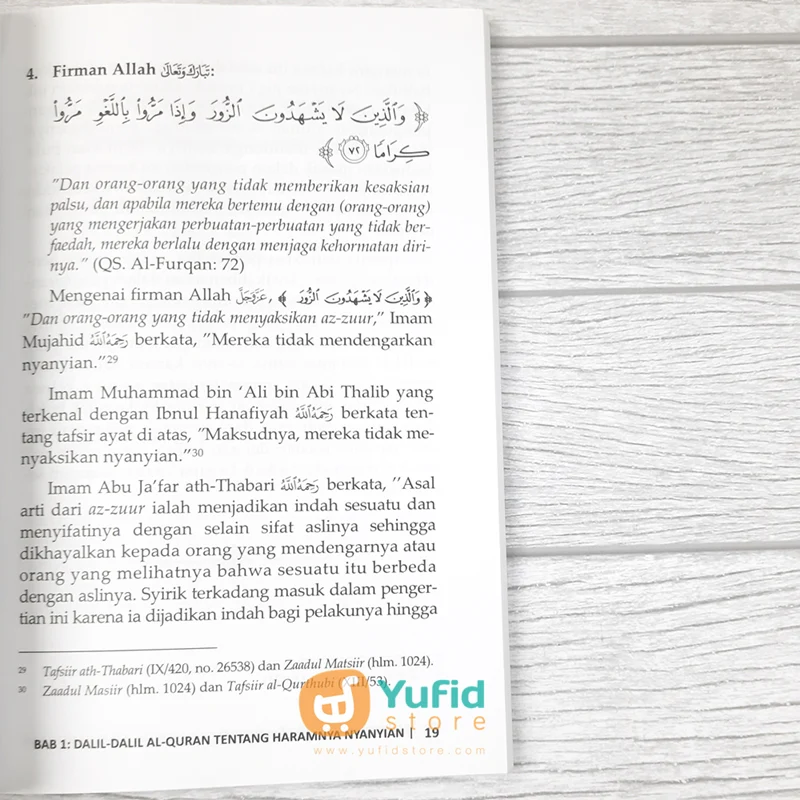 4. Firman Allah تَبَارَكَ وَتَعَالَى:
﴿ وَٱلَّذِينَ لَا يَشْهَدُونَ ٱلزُّورَ وَإِذَا مَرُّوا۟ بِٱللَّغْوِ مَرُّوا۟
كِرَامًا ٧٢ ﴾
"Dan orang-orang yang tidak memberikan kesaksian
palsu, dan apabila mereka bertemu dengan (orang-orang)
yang mengerjakan perbuatan-perbuatan yang tidak ber-
faedah, mereka berlalu dengan menjaga kehormatan diri-
nya." (QS. Al-Furqan: 72)
Mengenai firman Allah عَزَّوَجَلَّ, ﴿ وَٱلَّذِينَ لَا يَشْهَدُونَ ٱلزُّورَ ﴾
"Dan orang-orang yang tidak menyaksikan az-zuur," Imam
Mujahid رَحِمَهُ ٱللَّهُ berkata, "Mereka tidak mendengarkan
nyanyian."29
Imam Muhammad bin 'Ali bin Abi Thalib yang
terkenal dengan Ibnul Hanafiyah رَحِمَهُ ٱللَّهُ berkata ten-
tang tafsir ayat di atas, "Maksudnya, mereka tidak me-
nyaksikan nyanyian."30
Imam Abu Ja'far ath-Thabari رَحِمَهُ ٱللَّهُ berkata, "Asal
arti dari az-zuur ialah menjadikan indah sesuatu dan
menyifatinya dengan selain sifat aslinya sehingga
dikhayalkan kepada orang yang mendengarnya atau
orang yang melihatnya bahwa sesuatu itu berbeda
dengan aslinya. Syirik terkadang masuk dalam penger-
tian ini karena ia dijadikan indah bagi pelakunya hingga
29 Tafsiir ath-Thabari (IX/420, no. 26538) dan Zaadul Matsiir (hlm. 1024).
30 Zaadul Masiir (hlm. 1024) dan Tafsiir al-Qurthubi (XIII/53).
Yufid
store
www.yufidstore.com
BAB 1: DALIL-DALIL AL-QURAN TENTANG HARAMNYA NYANYIAN | 19